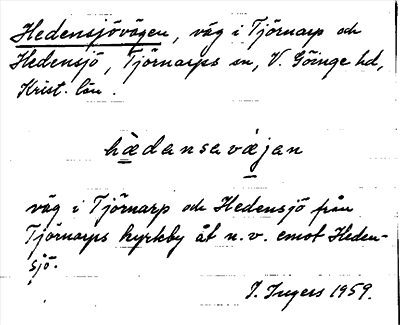 Hedensjövägen, väg i Tjörnarp och
Hedensjö, Tjörnarps sn, V. Göinge hd,
Krist. län.
hèdansavä̀jan
väg i Tjörnarp och Hedensjö från
Tjörnarps kyrkby åt n.v. emot Heden-
sjö.
I. Ingers 1959.